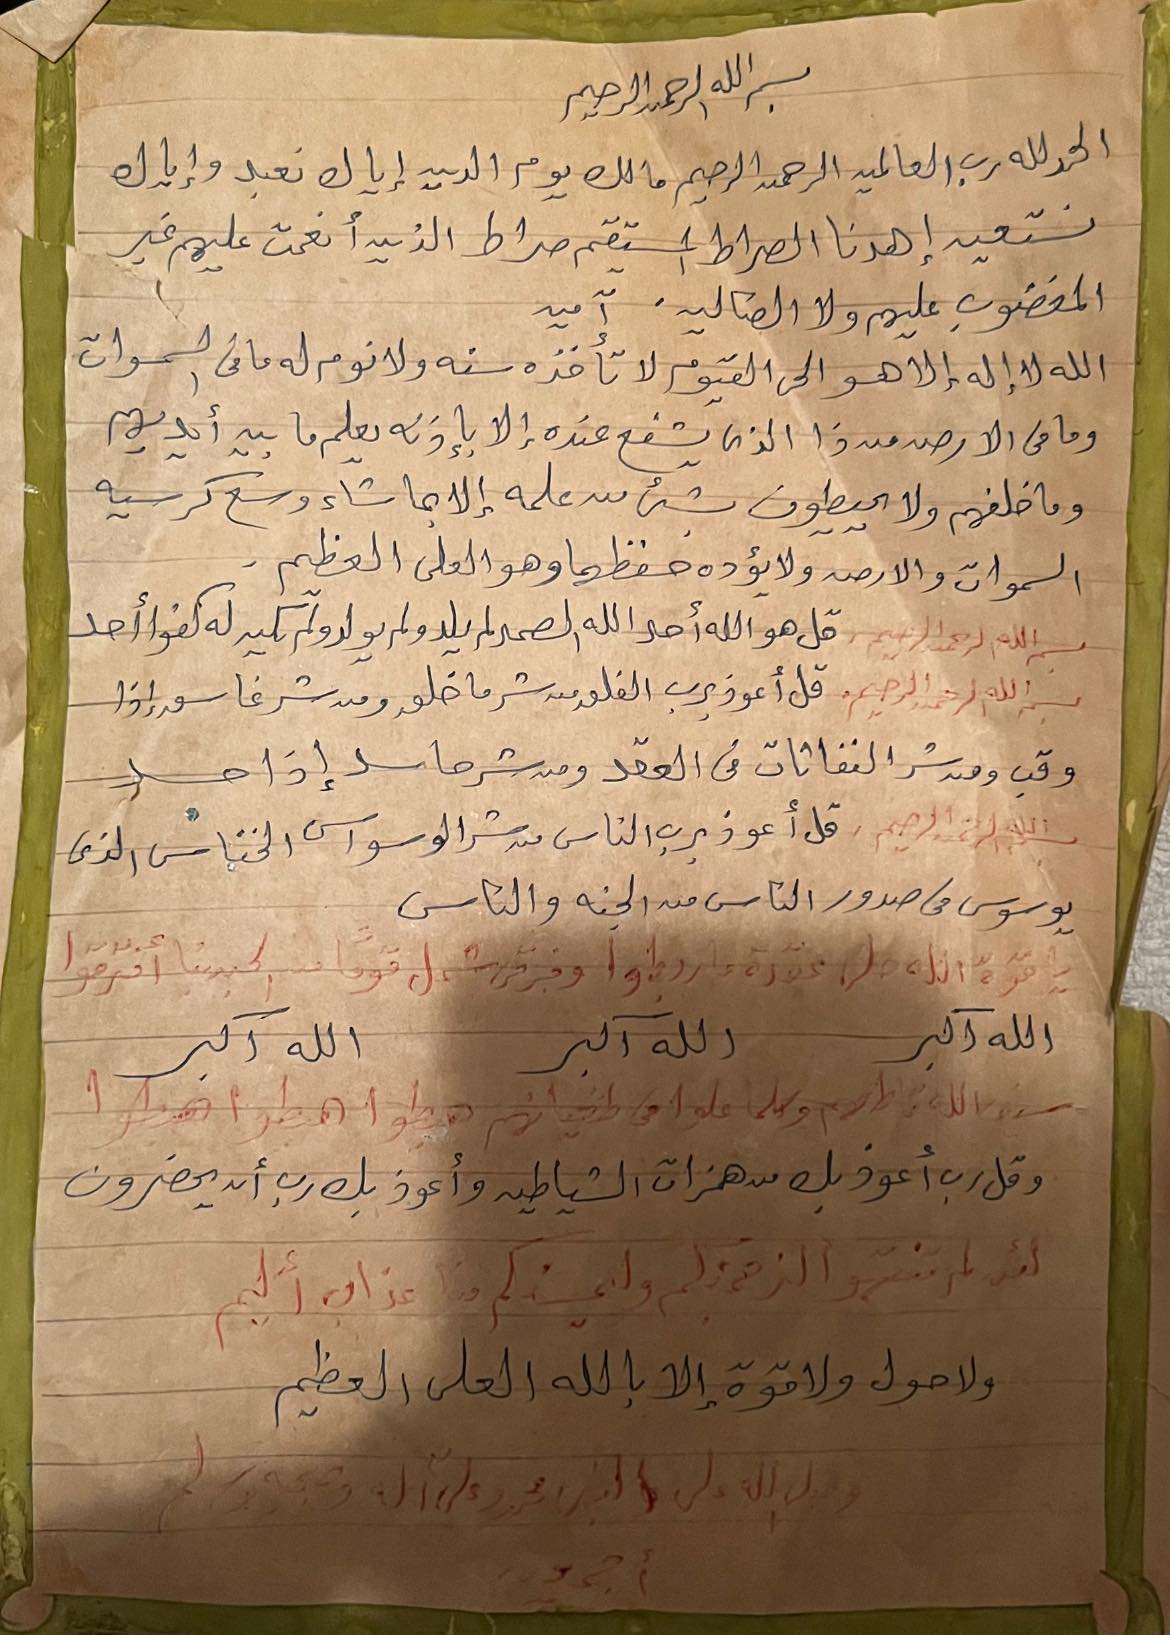 بسم الله الرحمن الرحيم
الحمد لله رب العالمين الرحمن الرحيم مالك يوم الدين إياك نعبد وإياك
نستعين إهدنا الصراط المستقيم صراط الذين أنعمت عليهم غير
المغضوب عليهم ولا الضالين . آمين
الله لا إله إلا هو الحى القيوم لا تأخذه سنه ولا نوم له ما فى السموات
وما فى الارض من ذا الذى يشفع عنده إلا بإذنه يعلم ما بين أيديهم
وما خلفهم ولا يحيطون بشئ من علمه إلا بما شاء وسع كرسيه
السموات والارض ولا يؤده حفظهما وهو العلى العظيم .
بسم الله الرحمن الرحيم . قل هو الله أحد الله الصمد لم يلد ولم يولد ولم يكن له كفوا أحد
بسم الله الرحمن الرحيم . قل أعوذ برب الفلق من شر ما خلق ومن شر غاسق إذا
وقب ومن شر النفاثات فى العقد ومن شر حاسد إذا حسد
بسم الله الرحمن الرحيم . قل أعوذ برب الناس من شر الوسواس الخناس الذى
يوسوس فى صدور الناس من الجنه والناس
الله عقدة ربطوا وفرق
الله أكبر الله أكبر الله أكبر
الله وكلما علوا فى طغيانهم هبطوا هبطوا هبطوا
وقل رب أعوذ بك من همزات الشياطين وأعوذ بك رب أن يحضرون
لئن لم تنتهوا لنرجمنكم وليمسنكم منا عذاب أليم
ولا حول ولا قوة إلا بالله العلى العظيم
وصل الله على النبى محمد وعلى آله وصحبه وسلم
أجمعين